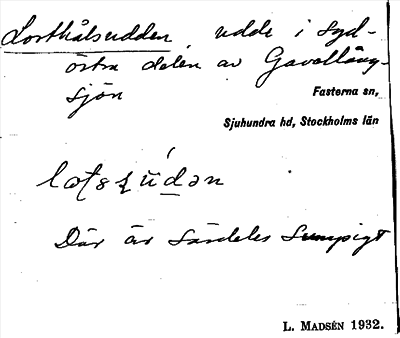 Losthålsudden, udde i syd-
östra delen av Gavellång-
sjön
Fasterna sn,
Sjuhundra hd, Stockholms län
Där är särdeles sumpigt
L. MADSÉN 1932.